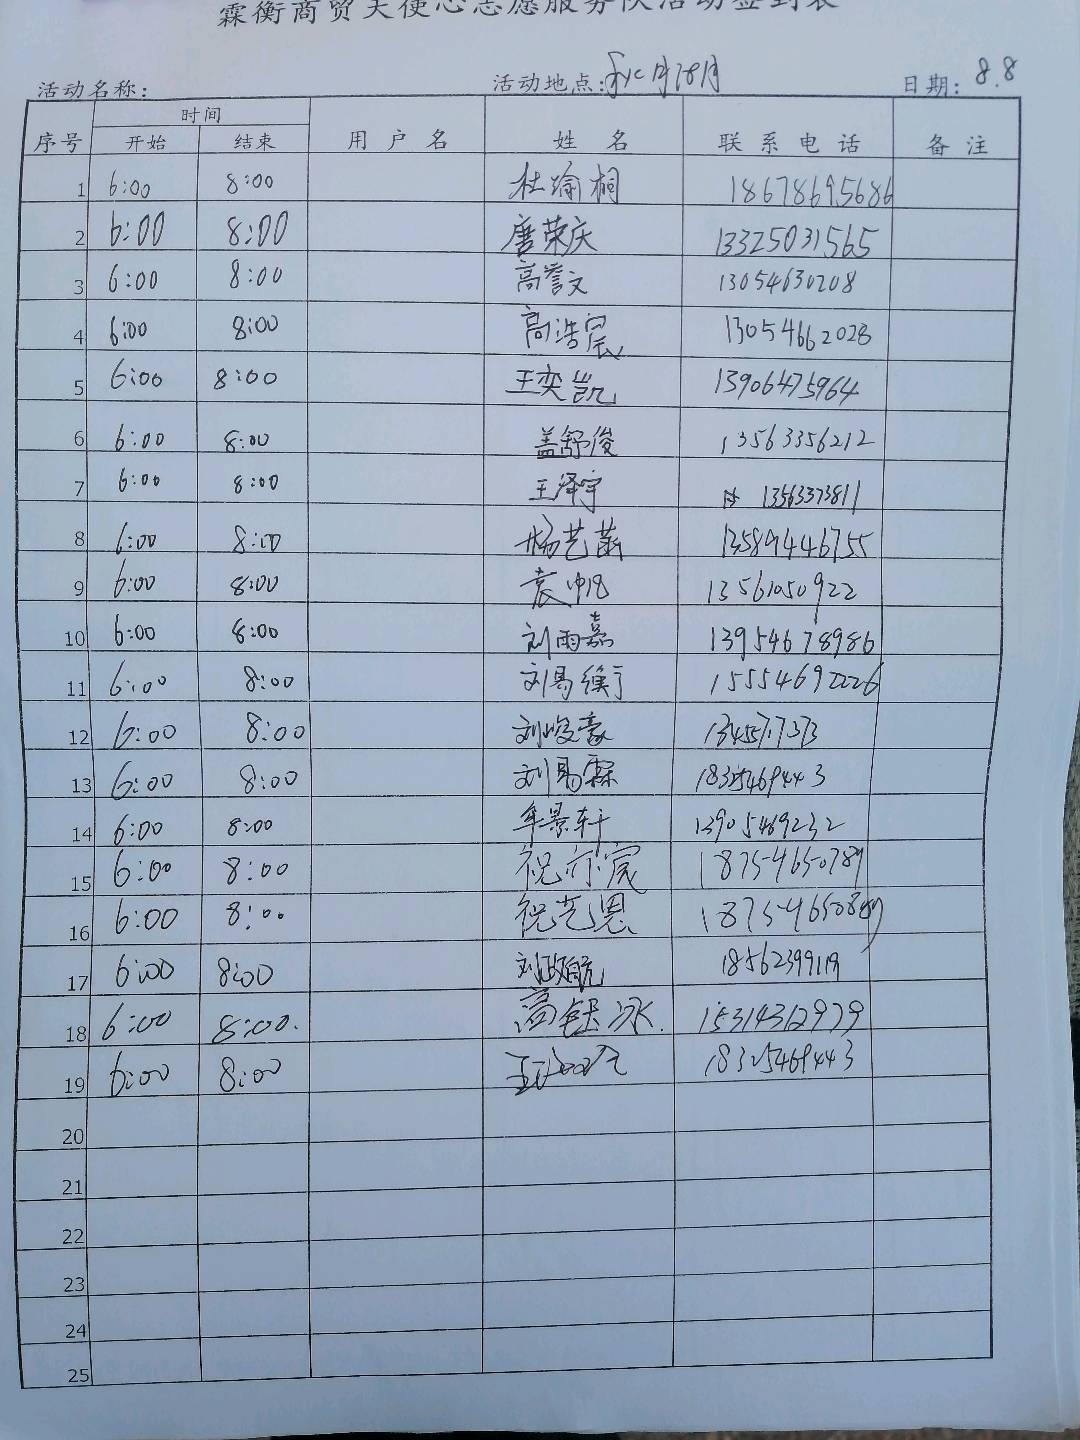 霖衡商贸天使心志愿服务队活动签到表
活动名称: 活动地点: 日期: 8.8
序号 时间 用户名 姓名 联系电话 备注
开始 结束
1 6:00 8:00 杜瑜桐 18678695686
2 6:00 8:00 唐荣庆 13325031565
3 6:00 8:00 高誉文 13054630208
4 6:00 8:00 高浩宸 13054662028
5 6:00 8:00 王奕凯 13906475964
6 6:00 8:00 盖舒俊 13563356212
7 6:00 8:00 王泽宇 13563373811
8 6:00 8:00 杨艺菡 13589446755
9 6:00 8:00 袁帅 13561050922
10 6:00 8:00 刘雨嘉 13954678986
11 6:00 8:00 刘易衡 15554692226
12 6:00 8:00 刘峻豪
13 6:00 8:00 刘易霖 18325469443
14 6:00 8:00 牟景轩 13905469232
15 6:00 8:00 祝亦宸 18754650789
16 6:00 8:00 祝艺恩
17 6:00 8:00 刘政航 18562399119
18 6:00 8:00. 高钰冰. 15314312979
19 6:00 8:00 18325469443
20
21
22
23
24
25